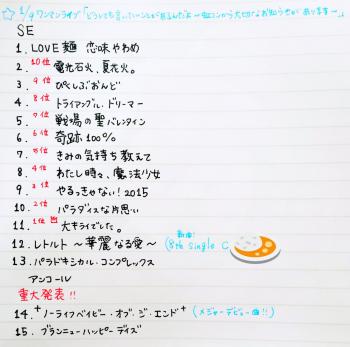 ☆1/9ワンマンライブ「どうしても言いたいことがあるんだよ～虹コンから大切なお知らせがあります～」
SE
1. LOVE麺 恋味やわめ
2. 10位 電光石火、夏花火。
3. 9位 ぴくしぶおんど
4. 8位 トライアングル・ドリーマー
5. 7位 戦場の聖バレンタイン
6. 6位 奇跡100%
7. 5位 きみの気持ち教えて
8. 4位 わたし時々、魔法少女
9. 3位 やるっきゃない!2015
10. 2位 パラダイスな片思い
11. 1位 大キライでした。
12. レトルト ～華麗なる愛～ (新曲! 8th single
13. パラドキシカル・コンプレックス
アンコール
重大発表!!
14. +ノーライフベイビー・オブ・ジ・エンド+ (メジャーデビュー曲!!)
15. ブランニューハッピーデイズ